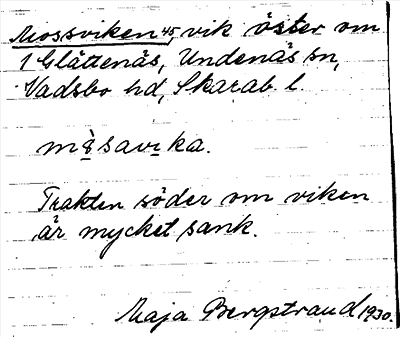 Mossviken 45, vik öster om
1 Glättenäs, Undenäs sn,
Vadsbo hd, Skarab. l.
Trakten söder om viken
är mycket sank.
Maja Bergstrand 1930.